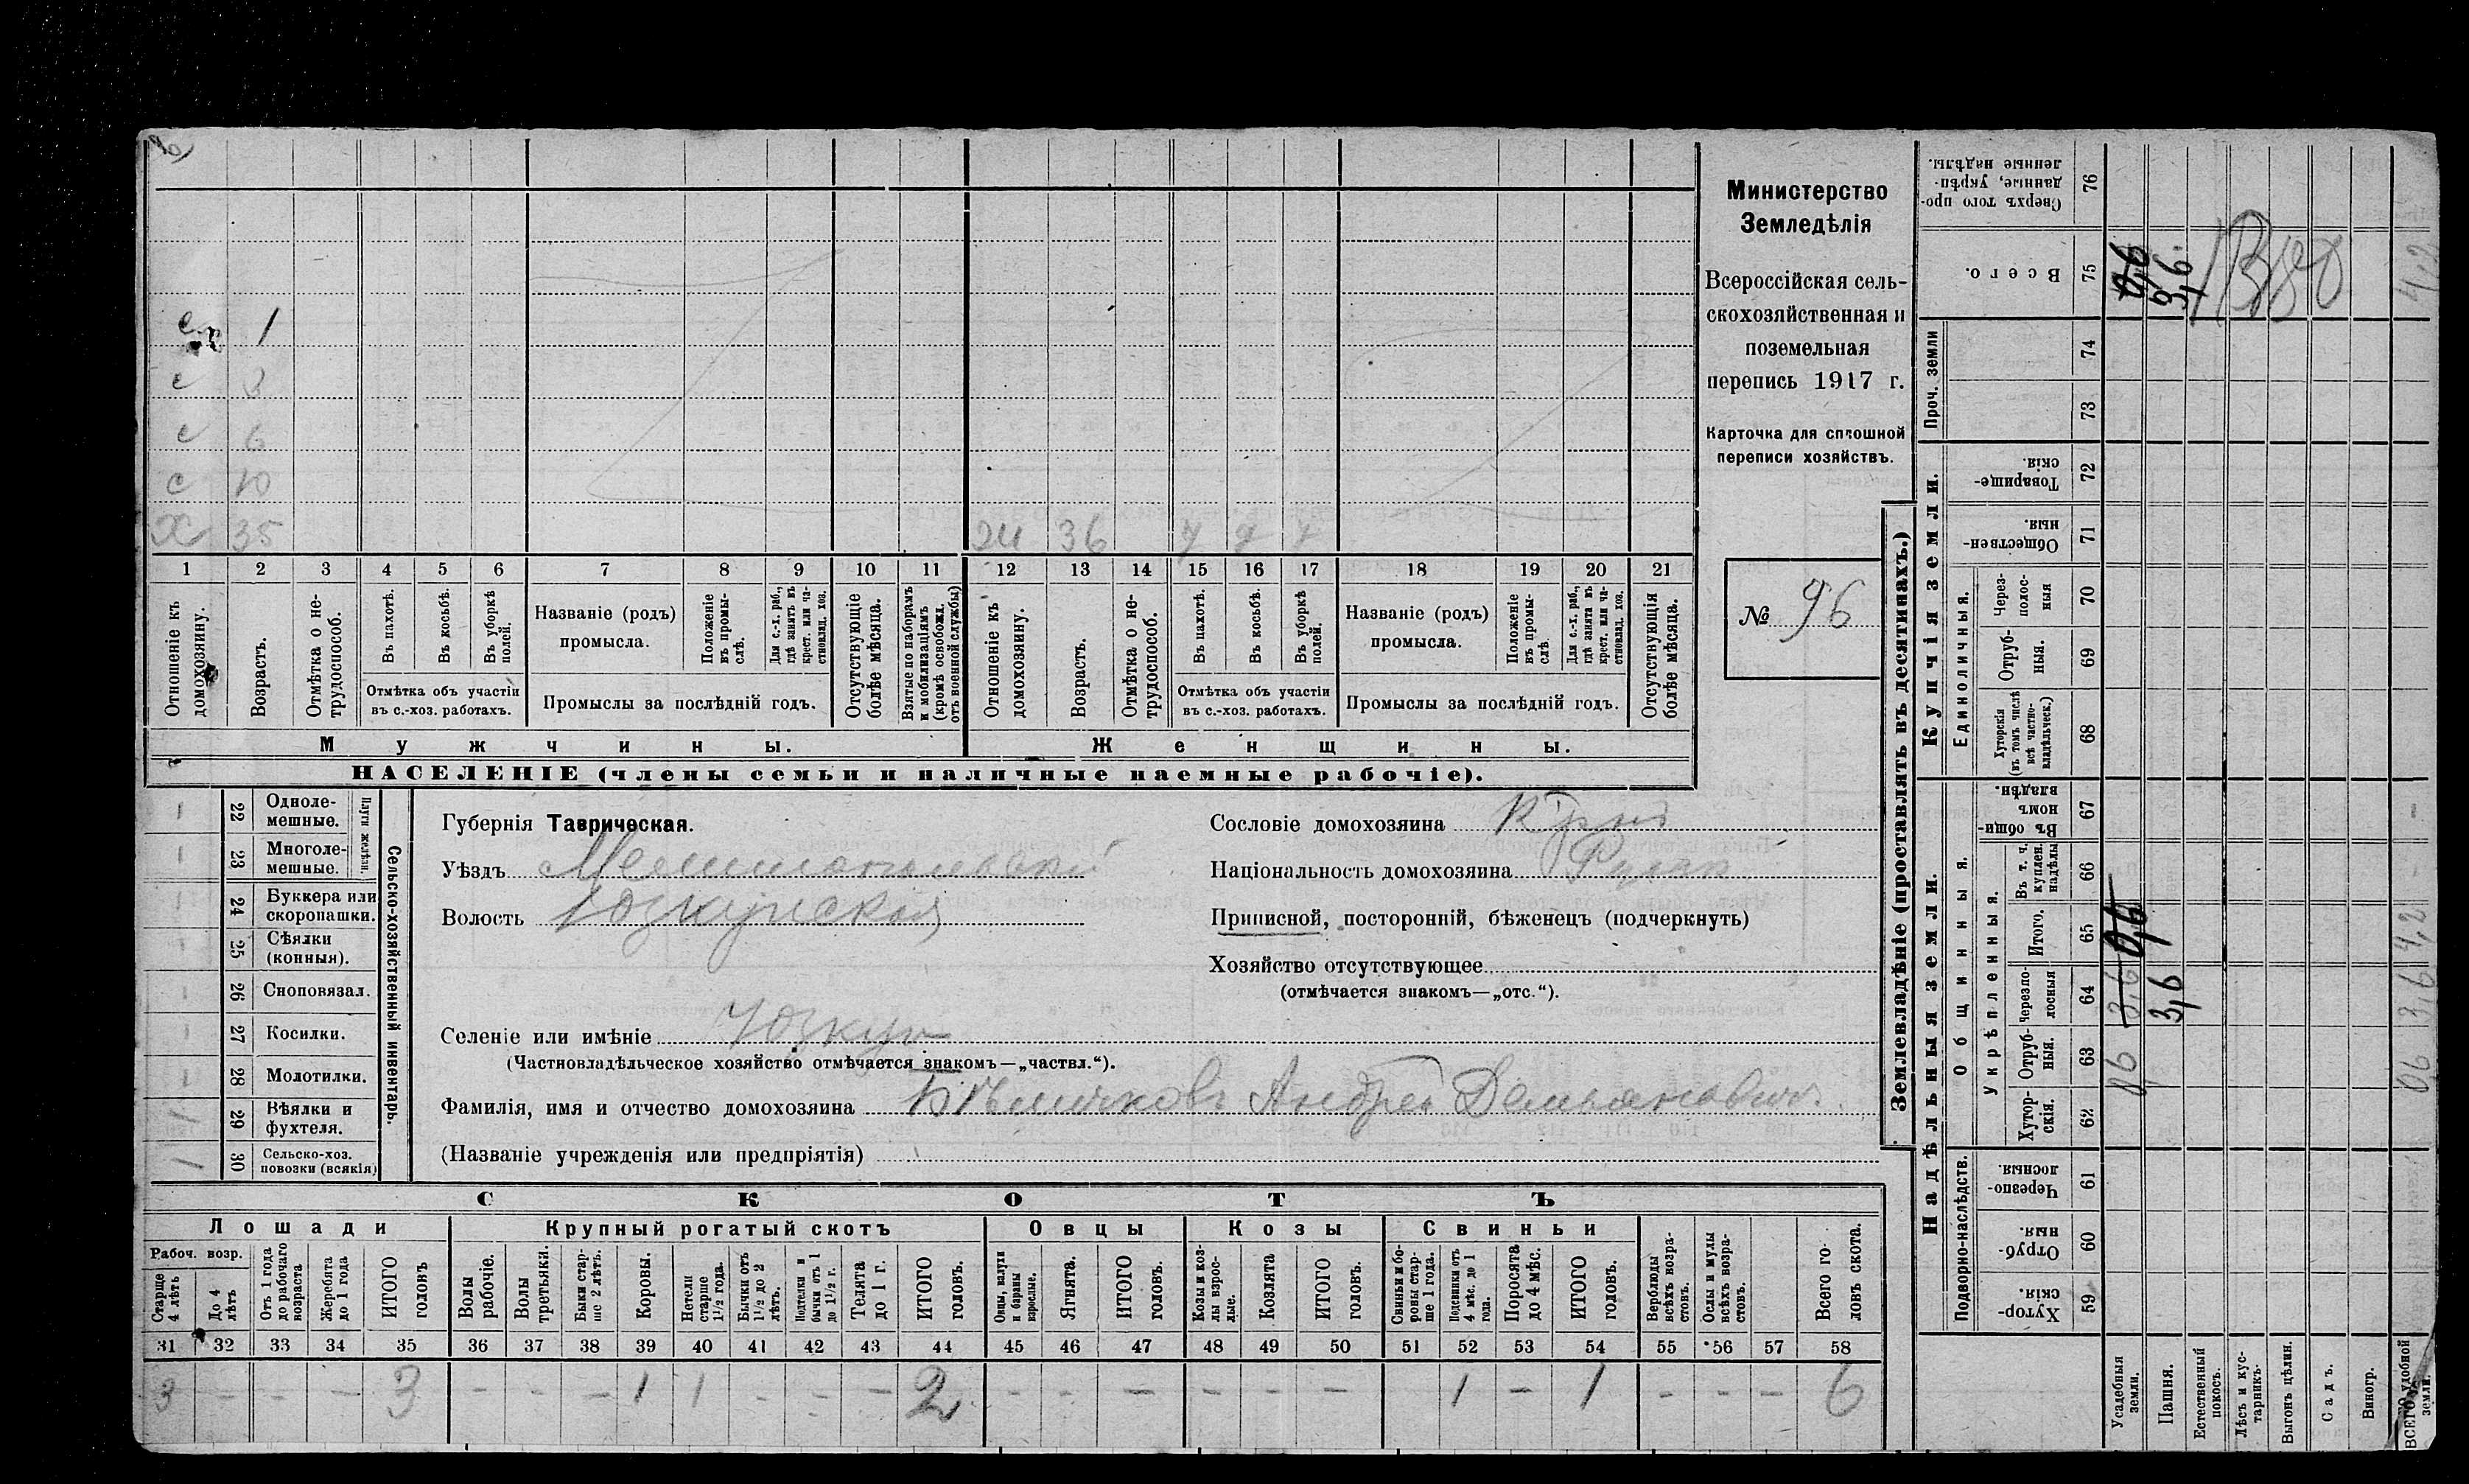 с 1
с 3
с 6
с 10
х 35 24 36 7 7 7
1 2 3 4 5 6 7 8 9 10 11 12 13 14 15 16 17 18 19 20 21
Отношеніе къ домохозяину.
Возрастъ.
Отмѣтка о не-трудоспособ.
Въ пахотѣ.
Въ косьбѣ.
Въ уборкѣ полей.
Отмѣтка объ участіи
въ с.-хоз. работахъ.
Названіе (родъ)
промысла.
Положеніе въ промы-слѣ.
Для с.-х. раб., гдѣ занятъ въ крест. или ча-стновлад. хоз.
Промыслы за послѣдній годъ.
Отсутствующіе болѣе мѣсяца.
Взятые по наборамъ и мобилизаціямъ (кромѣ освобожд. отъ военной службы)
Отношеніе къ домохозяину.
Возрастъ.
Отмѣтка о не-трудоспособ.
Въ пахотѣ.
Въ косьбѣ.
Въ уборкѣ полей.
Отмѣтка объ участіи
въ с.-хоз. работахъ.
Названіе (родъ)
промысла.
Положеніе въ промы-слѣ
Для с.-х. раб., гдѣ занята въ крест. или ча-стновлад. хоз.
Промыслы за послѣдній годъ.
Отсутствующія болѣе мѣсяца.
Мужчины. Женщины.
НАСЕЛЕНІЕ (члены семьи и наличные наемные рабочіе).
Министерство
Земледѣлія
Всероссійская сель-
скохозяйственная и
поземельная
перепись 1917 г.
Карточка для сплошной
переписи хозяйствъ.
№ 96
22 Одноле-мешные.
23 Многоле-мешные.
Плуги желѣзн.
24 Буккера или скоропашки.
25 Сѣялки (конныя).
26 Сноповязал.
27 Косилки.
28 Молотилки.
1 29 Вѣялки и фухтеля.
1 30 Сельско-хоз. повозки (всякія)
Сельско-хозяйственный инвентарь.
Губернія Таврическая.
Уѣздъ Мелитопольскій
Волость Юзкуйская
Селеніе или имѣніе Юзкуи
(Частновладѣльческое хозяйство отмѣчается знакомъ—„частвл.“).
Фамилія, имя и отчество домохозяина Андрей Демьяновичъ
(Названіе учрежденія или предпріятія)
Сословіе домохозяина Крест
Національность домохозяина
Приписной, посторонній, бѣженецъ (подчеркнуть)
Хозяйство отсутствующее
(отмѣчается знакомъ—„отс.“).
СКОТЪ
Лошади Крупный рогатый скотъ Овцы Козы Свиньи
Рабоч. возр.
Старше 4 лѣтъ
До 4 лѣтъ
Отъ 1 года до рабочаго возраста
Жеребята до 1 года
ИТОГО головъ
Волы рабочіе.
Волы третьяки.
Быки стар-ше 2 лѣтъ.
Коровы.
Нетели старше 1½ года.
Бычки отъ 1½ до 2 лѣтъ.
Подтелки и бычки отъ 1 до 1½ г.
Телята до 1 г.
ИТОГО головъ.
Овцы, валухи и бараны взрослые.
Ягнята.
ИТОГО головъ.
Козы и коз-лы взрос-лые.
Козлята
ИТОГО головъ.
Свиньи и бо-ровы стар-ше 1 года.
Подсвинки отъ 4 мѣс. до 1 года.
Поросята до 4 мѣс.
ИТОГО головъ.
Верблюды всѣхъ возра-стовъ.
Ослы и мулы всѣхъ возра-стовъ.
Всего го-ловъ скота.
31 32 33 34 35 36 37 38 39 40 41 42 43 44 45 46 47 48 49 50 51 52 53 54 55 56 57 58
3 - - - 3 - - - 1 1 - - - 2 - - - - - - - 1 - 1 - - - 6
Землевладѣніе (проставлять въ десятинахъ.)
Надѣльныя земли. Купчія земли. Проч. земли
Подворно-наслѣдств.
Общинныя.
Укрѣпленныя.
Единоличныя.
Сверхъ того про-данные, укрѣп-ленные надѣлы. 76
Всего. 75 3,6
74
73
Товарище-скія. 72
Обществен-ныя. 71
Через-полос-ныя 70
Отруб-ныя. 69
Хуторскія (въ томъ числѣ всѣ частно-владѣльческ.) 68
Въ общи-номъ владѣн. 67
Въ т. ч. куплен. надѣлы 66
Итого. 65 4,2
Черезпо-лосныя 64 3,6 3,6 3,6
Отруб-ныя. 63 06 06
Хутор-скія. 62
Черезпо-лосныя. 61
Отруб-ныя. 60
Хутор-скія. 59
Усадебныя земли.
Пашня.
Естественный покосъ.
Лѣсъ и кус-тарникъ.
Выгонъ цѣлин.
Садъ.
Виногр.
ВСЕГО удобной земли.